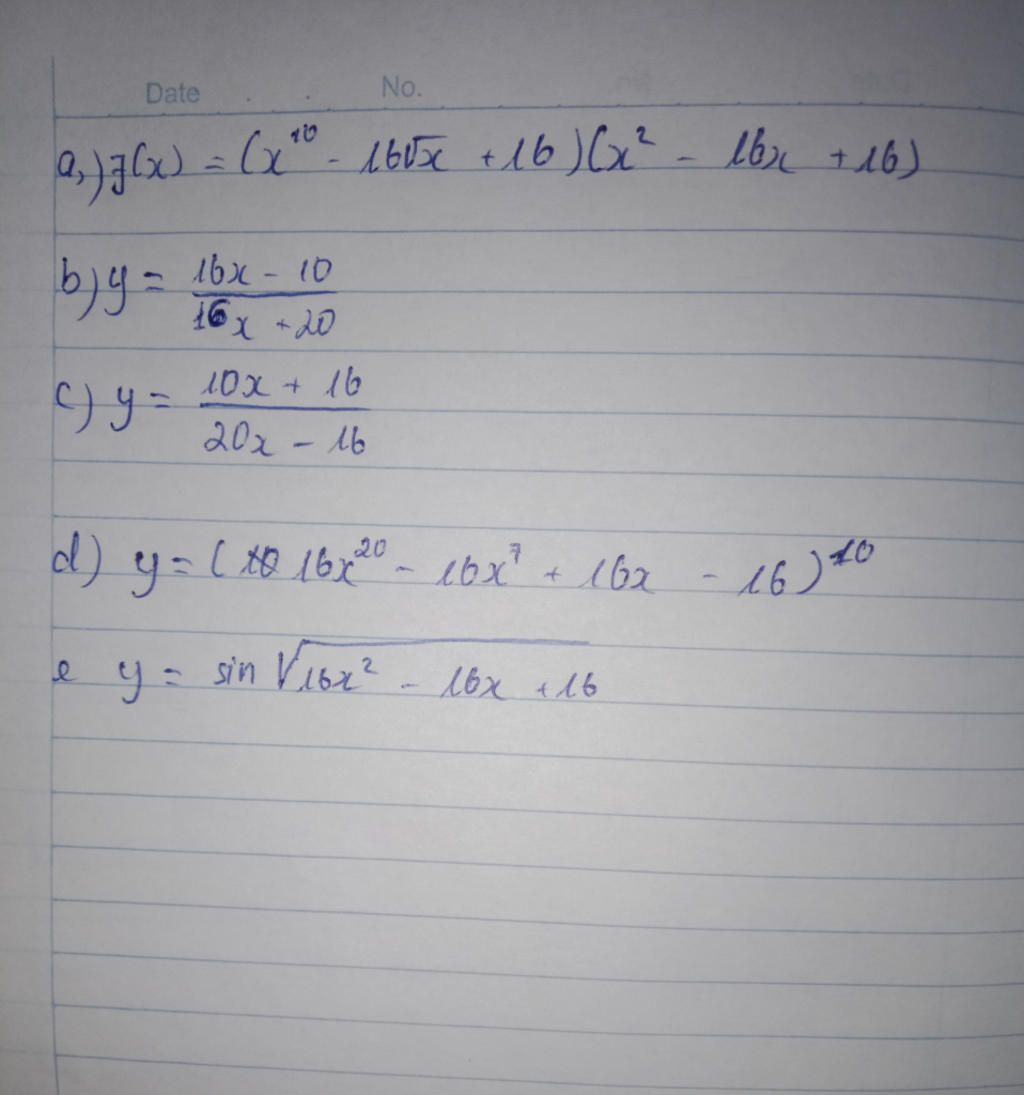 Date . . No.
a,) f(x) = (x^10 - 16√x + 16)(x^2 - 16x + 16)
b) y = (16x - 10)/(16x + 20)
c) y = (10x + 16)/(20x - 16)
d) y = (16x^20 - 16x^7 + 16x - 16)^10
e y = sin √(16x^2 - 16x + 16)